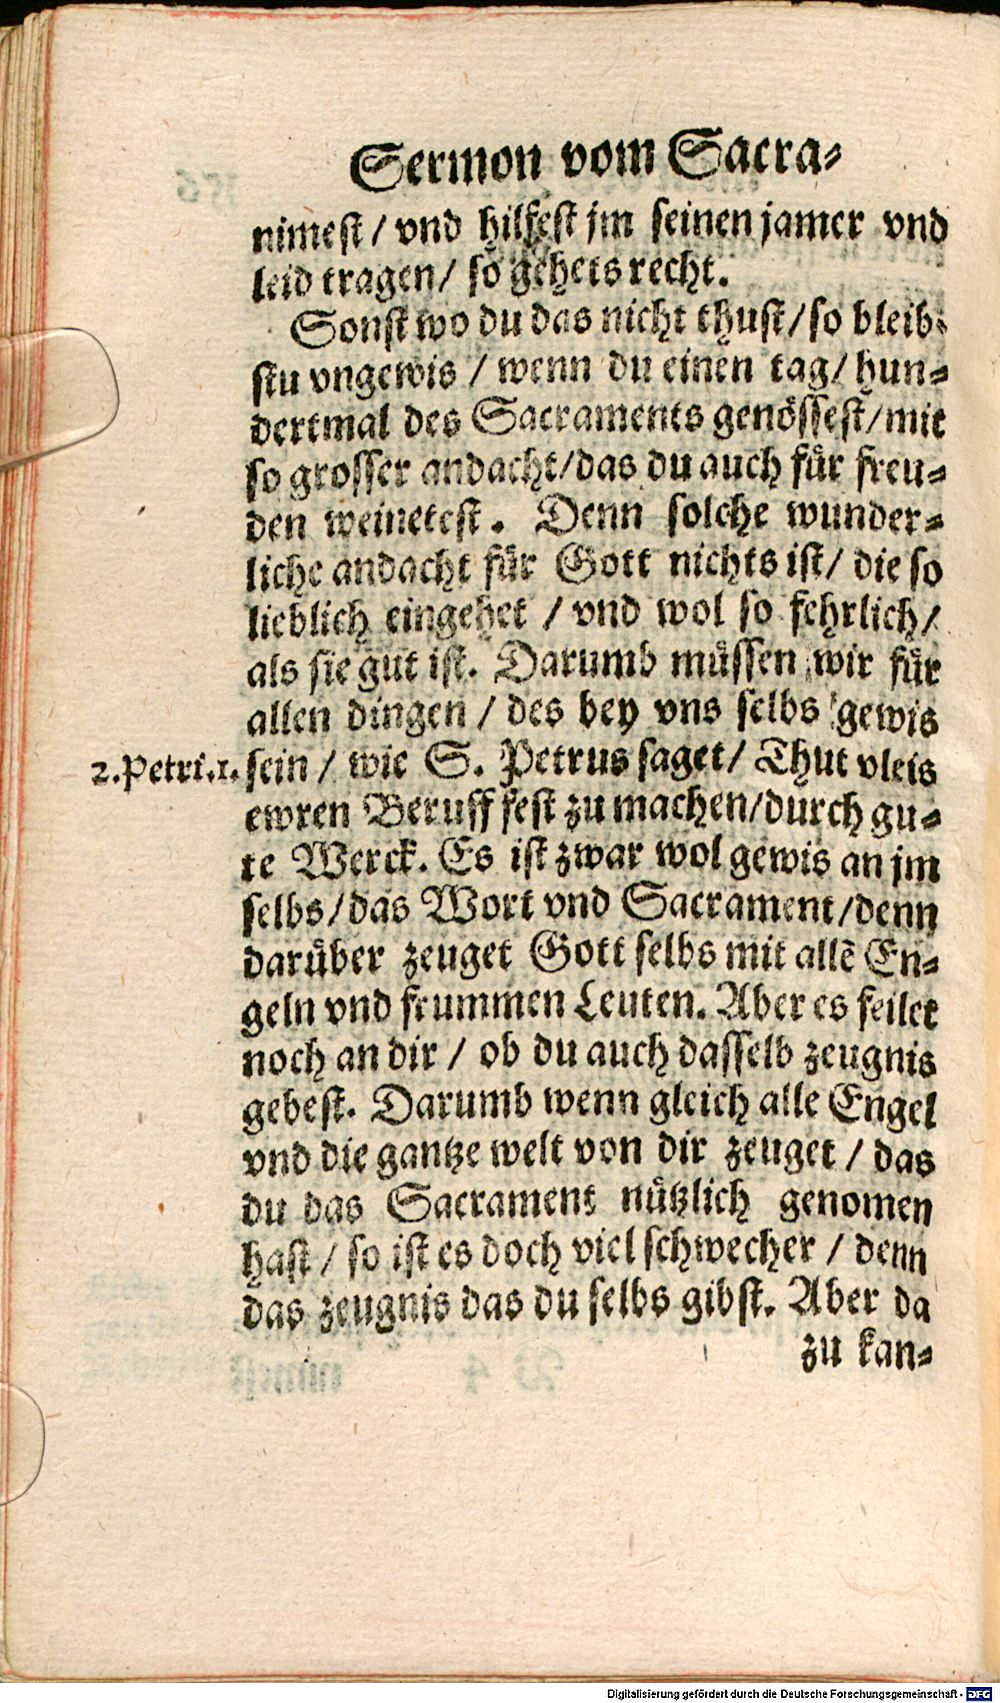 Sermon vom Sacra-
nimest / vnd hilfest jm seinen jamer vnd
leid tragen / so gehets recht.
Sonst wo du das nicht thust / so bleib-
stu vngewis / wenn du einen tag / hun-
dertmal des Sacraments genössest / mit
so grosser andacht / das du auch für freu-
den weinetest. Denn solche wunder-
liche andacht für Gott nichts ist / die so
lieblich eingehet / vnd wol so fehrlich /
als sie gut ist. Darumb müssen wir für
allen dingen / des bey vns selbs gewis
2. Petri. 1. sein / wie S. Petrus saget / Thut vleis
ewren Beruff fest zu machen / durch gu-
te Werck. Es ist zwar wol gewis an jm
selbs / das Wort vnd Sacrament / denn
darüber zeuget Gott selbs mit allē En-
geln vnd frummen Leuten. Aber es feilet
noch an dir / ob du auch dasselb zeugnis
gebest. Darumb wenn gleich alle Engel
vnd die gantze welt von dir zeuget / das
du das Sacrament nützlich genomen
hast / so ist es doch viel schwecher / denn
das zeugnis das du selbs gibst. Aber da
zu kan-
Digitalisierung gefördert durch die Deutsche Forschungsgemeinschaft - DFG